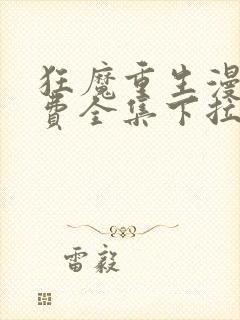 狂魔重生漫
费全集下拉
雷毅